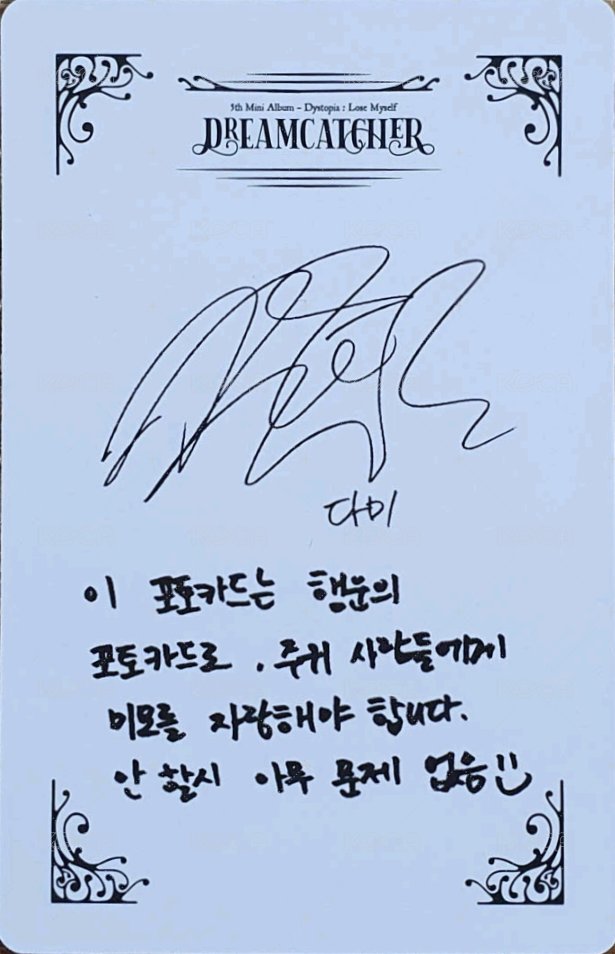 5th Mini Album - Dystopia : Lose Myself
DREAMCATCHER
다미
이 포토카드는 행운의
포토카드로, 주위 사람들에게
미모를 자랑해야 합니다.
안 할시 아무 문제 없음